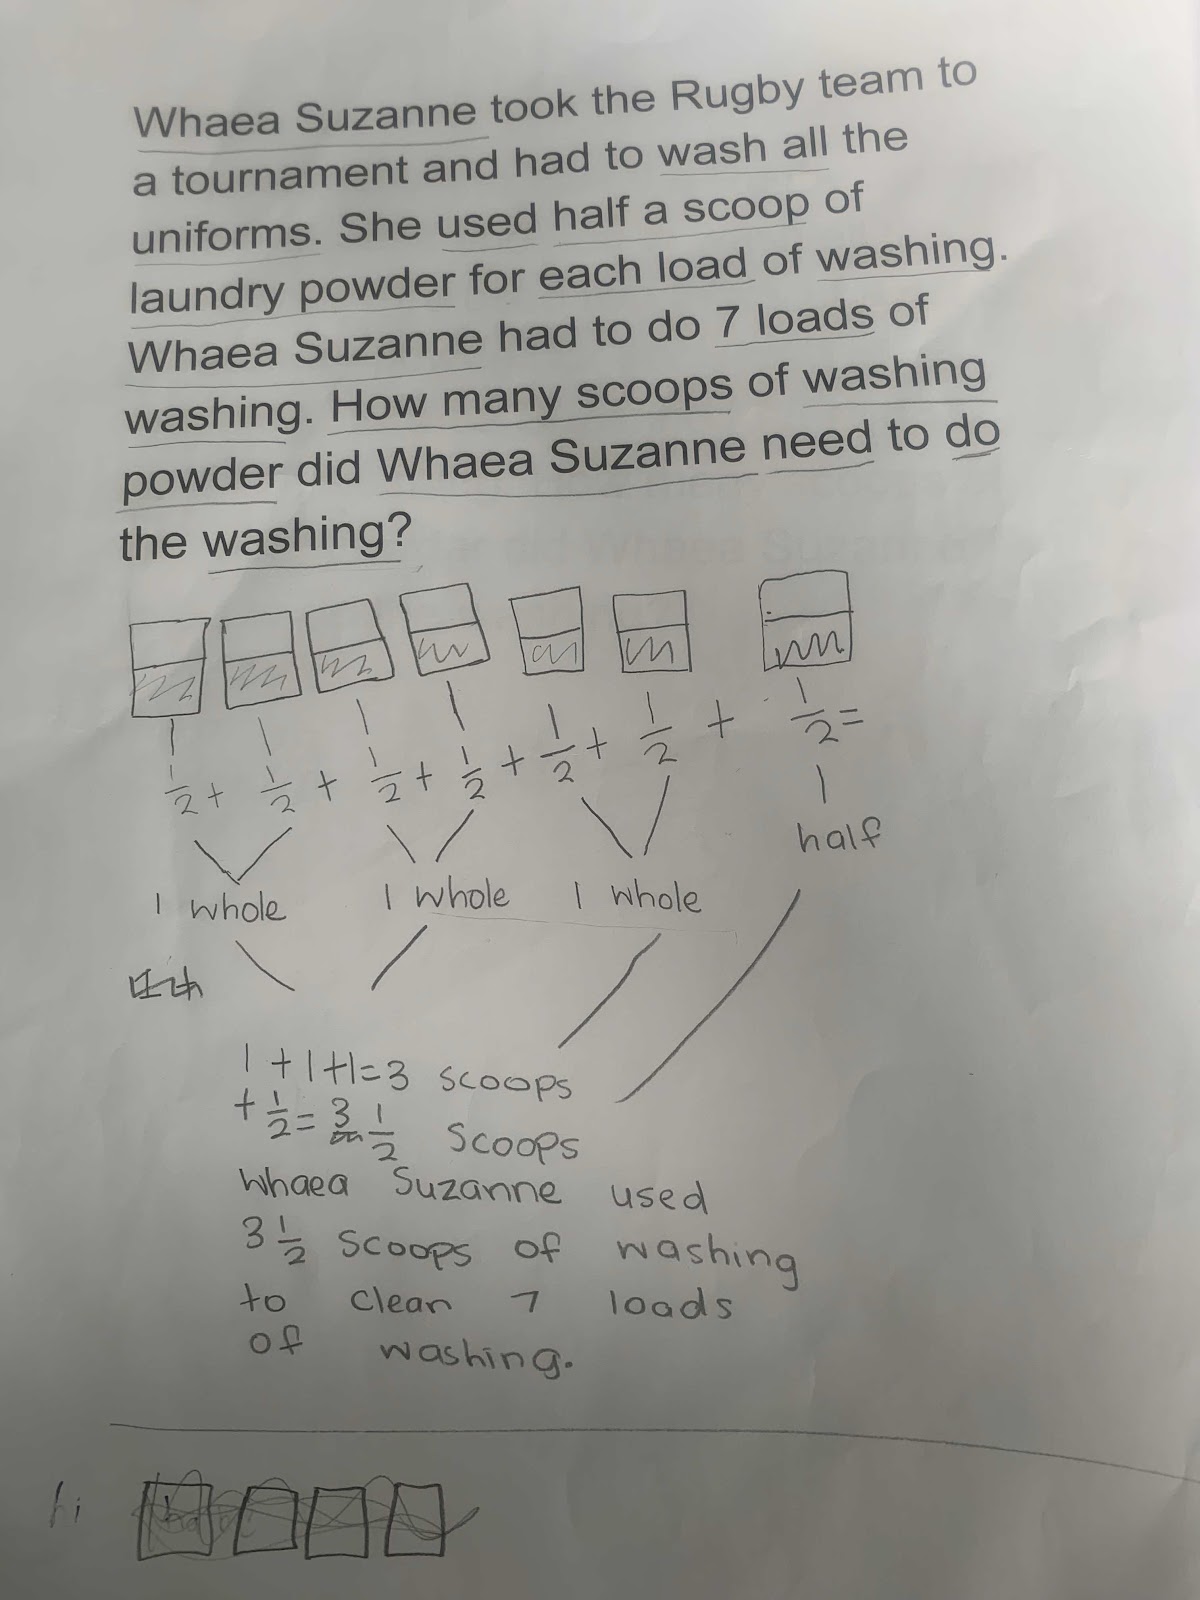 Whaea Suzanne took the Rugby team to
a tournament and had to wash all the
uniforms. She used half a scoop of
laundry powder for each load of washing.
Whaea Suzanne had to do 7 loads of
washing. How many scoops of washing
powder did Whaea Suzanne need to do
the washing?
1/2 + 1/2 + 1/2 + 1/2 + 1/2 + 1/2 + 1/2 =
half
1 whole 1 whole 1 whole
1 + 1 + 1 = 3 scoops
+ 1/2 = 3 1/2 scoops
Whaea Suzanne used
3 1/2 scoops of washing
to clean 7 loads
of washing.
hi